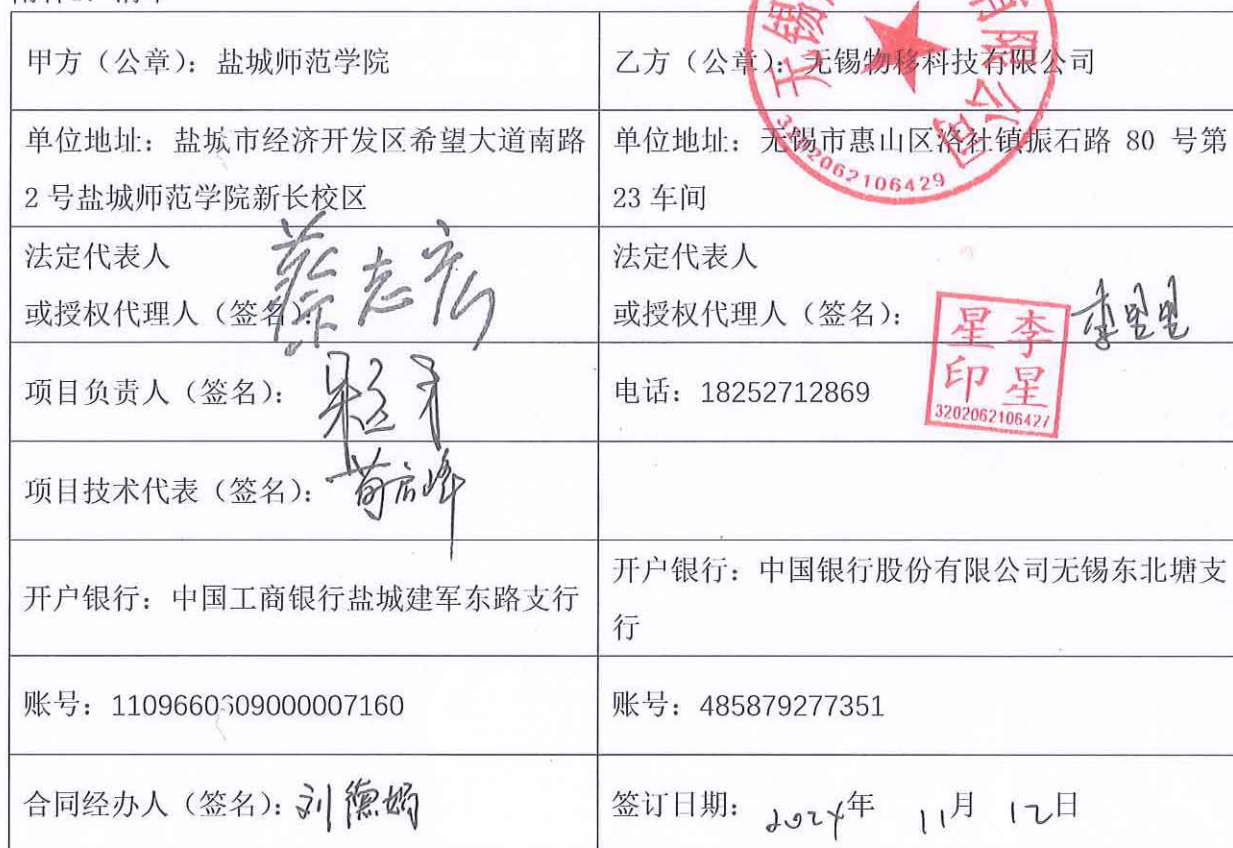 甲方（公章）：盐城师范学院
乙方（公章）：无锡物移科技有限公司
单位地址：盐城市经济开发区希望大道南路
2 号盐城师范学院新长校区
单位地址：无锡市惠山区洛社镇振石路 80 号第
23 车间
法定代表人
或授权代理人（签名）：
蔡志宏
法定代表人
或授权代理人（签名）：
李星星
李星
星印
3202062106427
项目负责人（签名）：
电话：18252712869
项目技术代表（签名）：
开户银行：中国工商银行盐城建军东路支行
开户银行：中国银行股份有限公司无锡东北塘支
行
账号：1109660609000007160
账号：485879277351
合同经办人（签名）：刘德娟
签订日期：2024年 11月 12日
无锡
有限公司
3202062106429